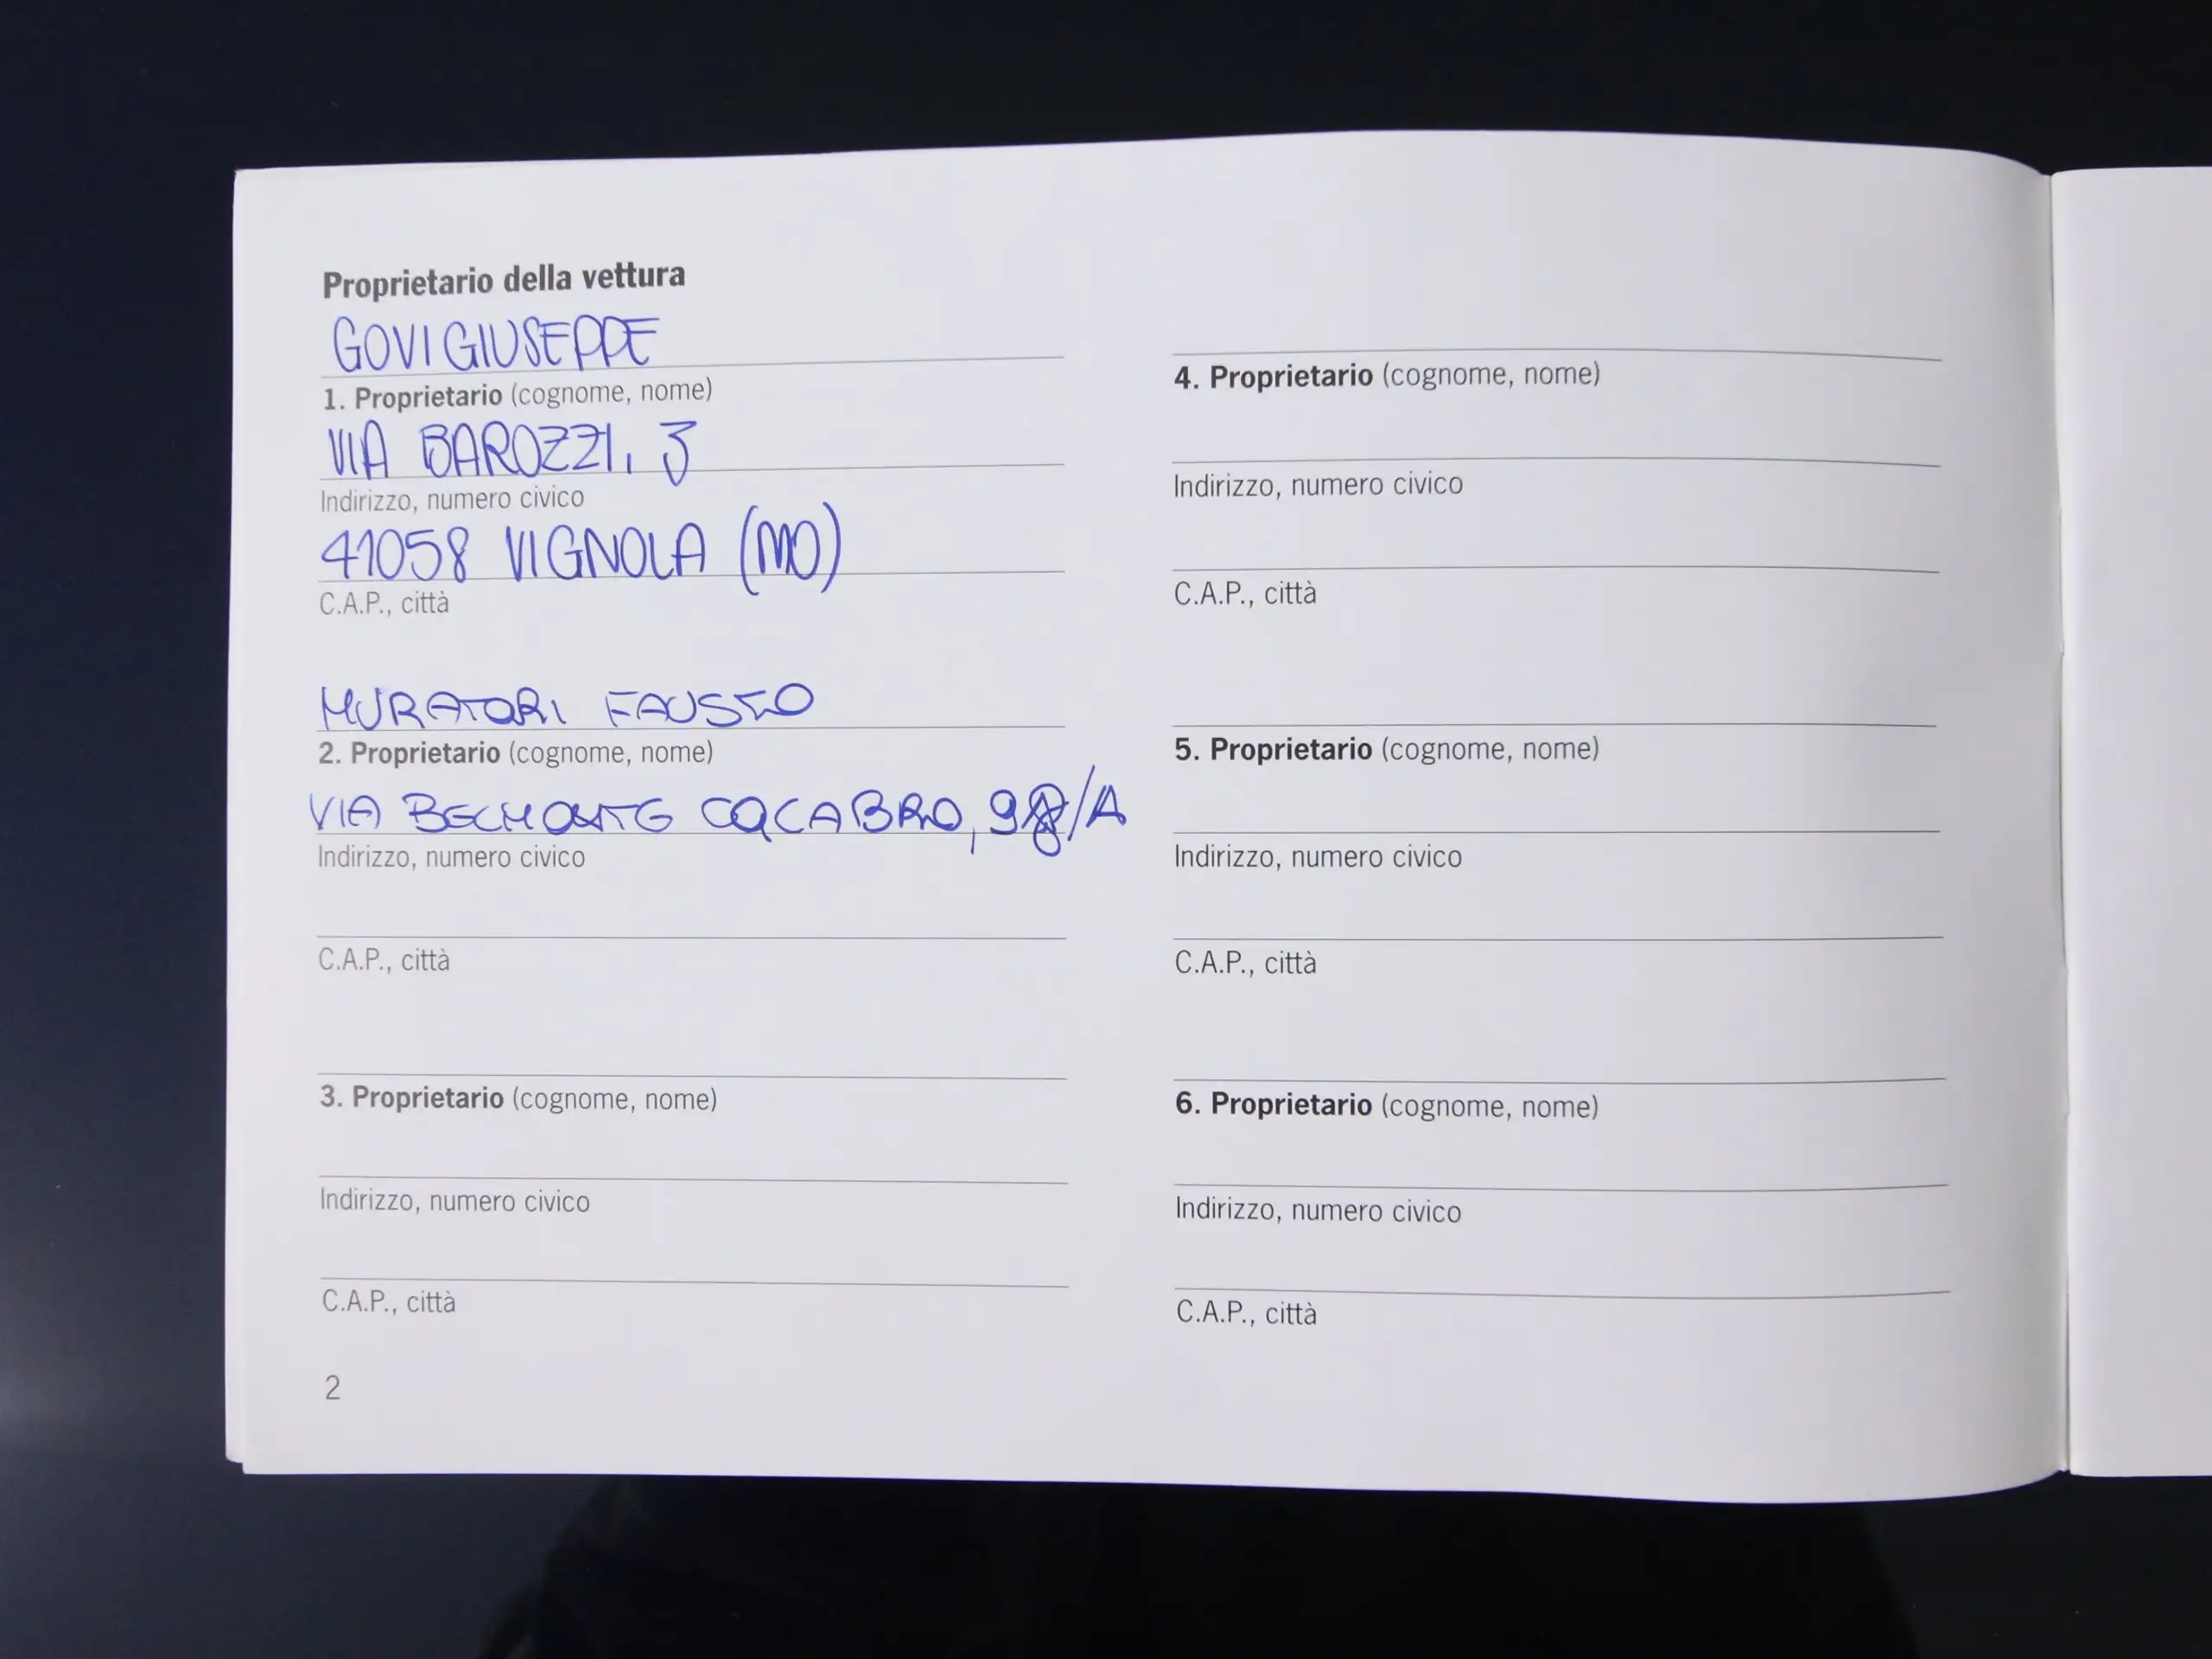 Proprietario della vettura
GOVI GIUSEPPE
1. Proprietario (cognome, nome)
VIA BAROZZI, 3
Indirizzo, numero civico
41058 VIGNOLA (MO)
C.A.P., città
MURATORI FAUSTO
2. Proprietario (cognome, nome)
VIA
Indirizzo, numero civico
C.A.P., città
3. Proprietario (cognome, nome)
Indirizzo, numero civico
C.A.P., città
2
4. Proprietario (cognome, nome)
Indirizzo, numero civico
C.A.P., città
5. Proprietario (cognome, nome)
Indirizzo, numero civico
C.A.P., città
6. Proprietario (cognome, nome)
Indirizzo, numero civico
C.A.P., città